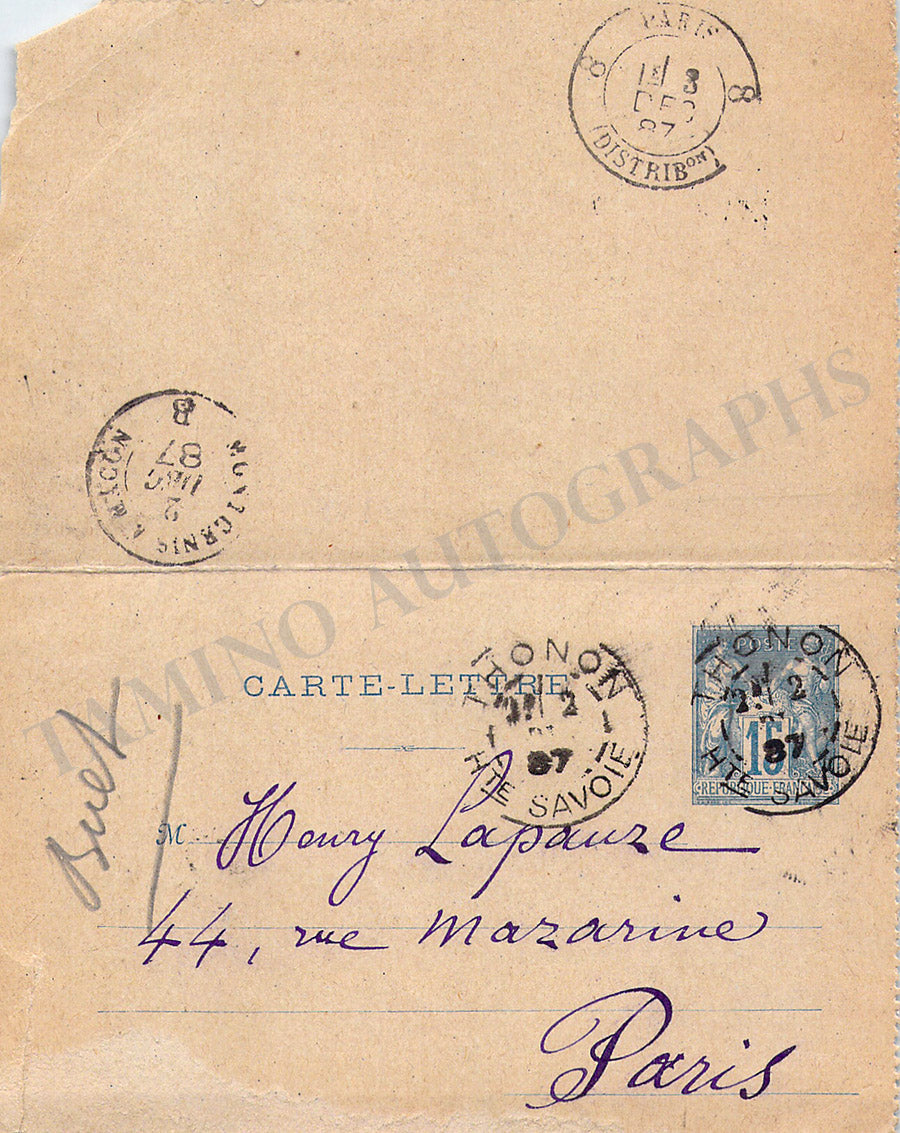 PARIS
8 8
3
DEC
87
(DISTRIBon)
B
87
DEC
2
TAMINO AUTOGRAPHS
CARTE-LETTRE
THONON
2
87
Hte SAVOIE
POSTE
THONON
2
15
87
Hte SAVOIE
REPUBLIQUE FRANÇAISE
Buet
M Henry Lapauze
44, rue Mazarine
Paris